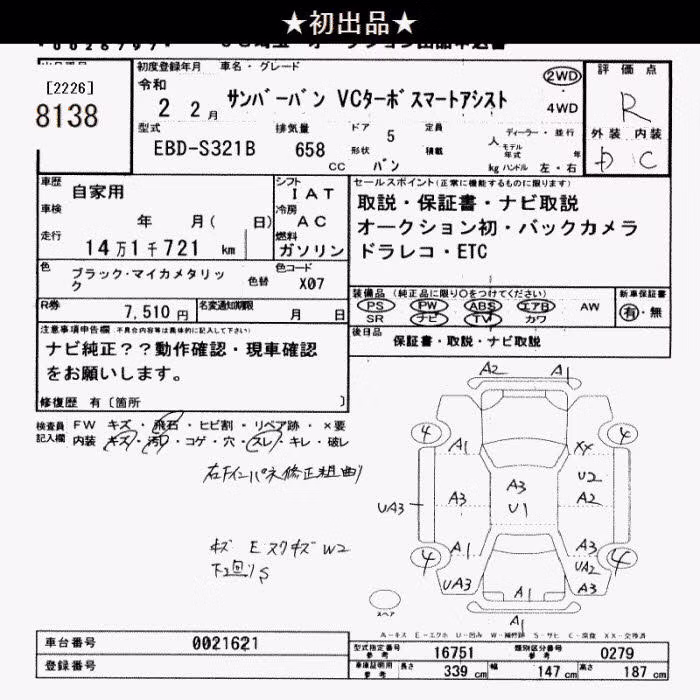 ★初出品★
[2226]
8138
初度登録年月 車名・グレード
令和
2 2月
サンバーバン VCターボスマートアシスト
2WD
4WD
評価点
R
外装 内装
D C
型式
EBD-S321B
排気量
658
CC
ドア
5
形状
バン
定員
人
積載
kg
ディーラー・並行
モデル年式 年
ハンドル 左・右
車歴
自家用
車検
年 月( 日)
走行
14万1千721 km
シフト
IAT
冷房
AC
燃料
ガソリン
セールスポイント(正常に機能するものに限ります)
取説・保証書・ナビ取説
オークション初・バックカメラ
ドラレコ・ETC
色
ブラック・マイカメタリック
色替
色コード
X07
装備品 (純正品に限り○をつけてください)
PS PW ABS エアB AW
SR ナビ TV カワ
新車保証書
有・無
R券
7,510円
名変通知期限
月 日
後日品
保証書・取説・ナビ取説
注意事項申告欄 不具合内容等は具体的に記入して下さい)
ナビ純正??動作確認・現車確認
をお願いします。
修復歴 有〔箇所 〕
検査員記入欄
FW キズ・飛石・ヒビ割・リペア跡・×要
内装 キズ・汚レ・コゲ・穴・スレ・キレ・破レ
右下インパネ修正粗曲り
キズ E スクキズ W2
下回りS
A2 A1
4 4
A1 XX
A3 U2
UA3 A3 U1 A2
A1 A3
4 UA2 4
UA3 A1 A3
A1
スペア
A－キズ E－エクボ U－凹み W－補修跡 S－サビ C－腐食 XX－交換済
車台番号 0021621
登録番号
型式指定番号 参考 16751
類別区分番号 参考 0279
車庫証明用 参考 長さ 339 cm 幅 147 cm 高さ 187 cm